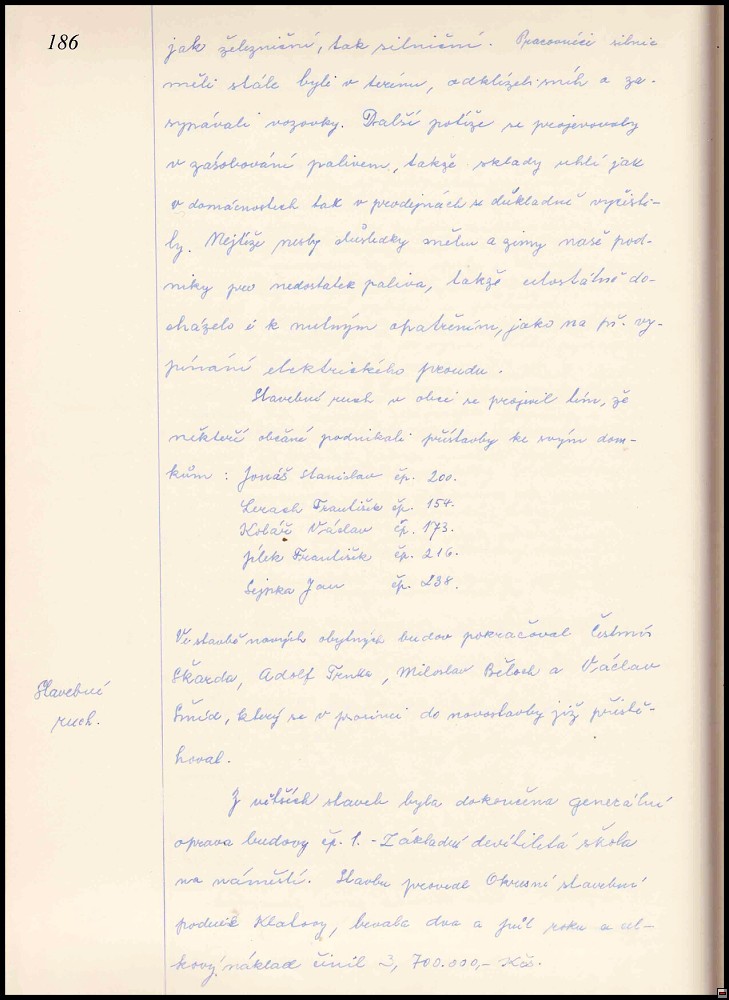 186
jak železniční, tak silniční. Pracovníci silnic
měli stále byli v terénu, odklízeli sníh a za-
sypávali vozovky. Další potíže se projevovaly
v zásobování palivem, takže sklady uhlí jak
v domácnostech tak v prodejnách se důkladně vyčisti-
ly. Nejtíže nesly důsledky sněhu a zimy naše pod-
niky pro nedostatek paliva, takže celostátně do-
cházelo i k nutným opatřením, jako na př. vy-
pínání elektrického proudu.
Stavební ruch v obci se projevil tím, že
někteří občané podnikali přístavby ke svým dom-
kům : Jonáš Stanislav čp. 200.
Lerach František čp. 154.
Kolář Václav čp. 173.
Jílek František čp. 216.
Sejpka Jan čp. 238.
Ve stavbě nových obytných budov pokračoval Čestmír
Škarda, Adolf Trnka, Miloslav Běloch a Václav
Šmíd, který se v prosinci do novostavby již přistě-
hoval.
Stavební
ruch.
Z větších staveb byla dokončena generální
oprava budovy čp. 1. - Základní devítiletá škola
na náměstí. Stavbu provedl Okresní stavební
podnik Klatovy, trvala dva a půl roku a cel-
kový náklad činil 3,700.000,- Kčs.